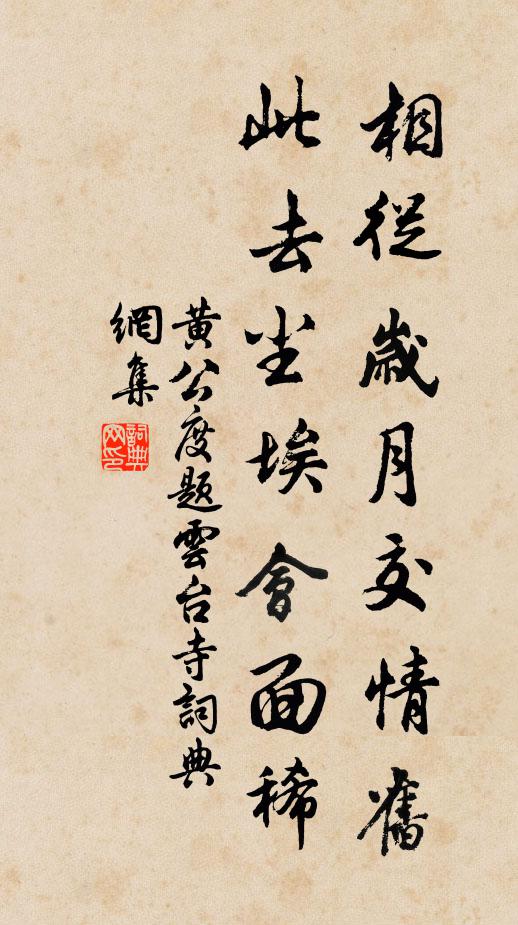 相從歲月交情舊
此去尘埃會面稀
黃公度題雲台寺詞典
網集
詞典網印